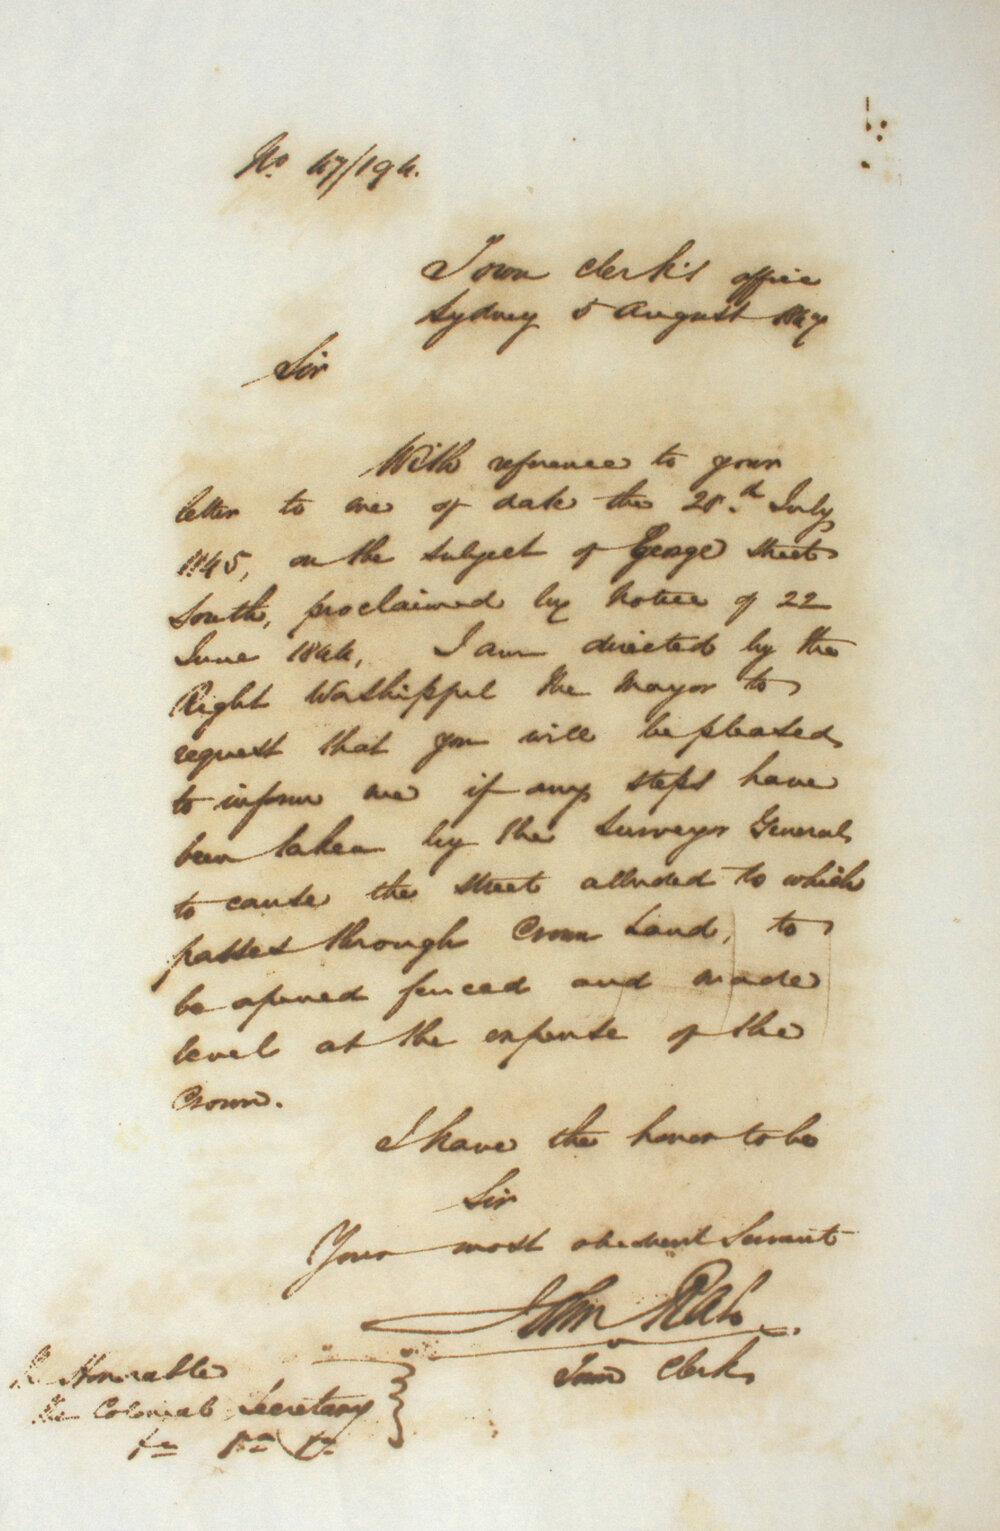 No. 47/194.
Town Clerk's office
Sydney 5 August 1847
Sir
With reference to your
letter to me of date the 28.th July
1845, on the subject of George Street
South, proclaimed by notice of 22
June 1844, I am directed by the
Right Worshipful the Mayor to
request that you will be pleased
to inform me if any steps have
been taken by the Surveyor General
to cause the street alluded to which
passes through Crown Land, to
be opened fenced and made
level at the expense of the
Crown.
I have the honor to be
Sir
Your most obedient Servant
John Rae
Town Clerk
Honorable
the Colonial Secretary